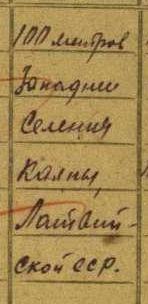 100 метров
Западнее
Селения
Калны,
Латвий-
ской ССР.